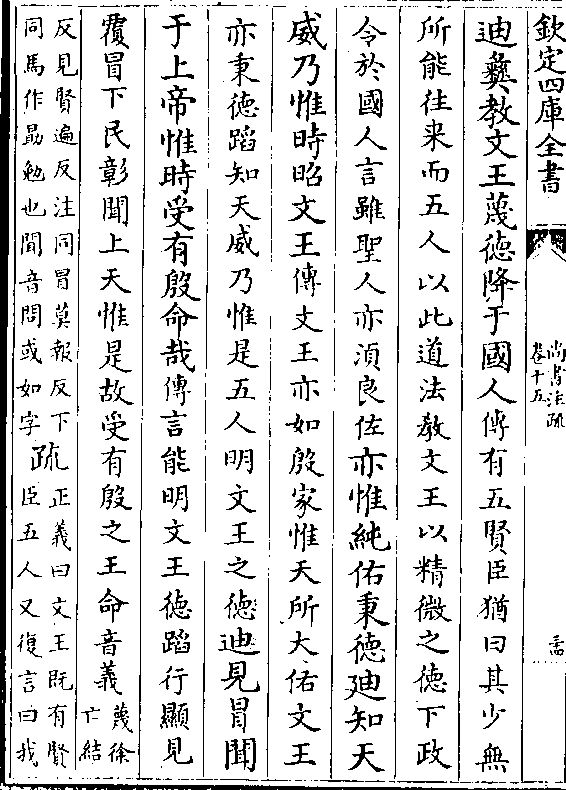 欽定四庫全書
尚書注疏
卷十五
迪彝教文王蔑德降于國人傳有五賢臣猶曰其少無
所能往来而五人以此道法教文王以精微之德下政
令於國人言雖聖人亦須良佐亦惟純佑秉德廸知天
威乃惟時昭文王傳文王亦如殷家惟天所大佑文王
亦秉德蹈知天威乃惟是五人明文王之德迪見冒聞
于上帝惟時受有殷命哉傳言能明文王德蹈行顯見
覆冒下民彰聞上天惟是故受有殷之王命音義
蔑徐
亡結
反見賢遍反注同冒莫報反下
同馬作勗勉也聞音問或如字
疏
正義曰文王既有賢
臣五人又復言曰我